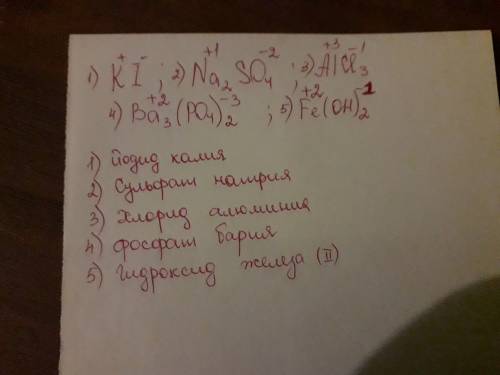 1) K⁺I⁻ ; 2) Na₂⁺¹SO₄⁻² ; 3) Al⁺³Cl₃⁻¹
4) Ba₃⁺²(PO₄)₂⁻³ ; 5) Fe⁺²(OH)₂⁻¹
1) Йодид калия
2) Сульфат натрия
3) Хлорид алюминия
4) Фосфат бария
5) Гидроксид железа (II)